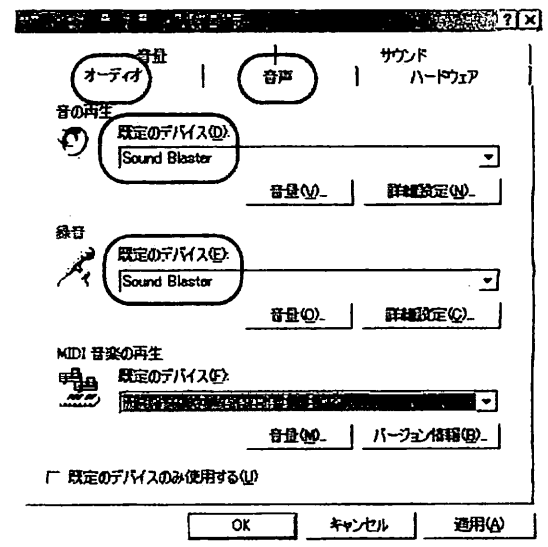 音量 サウンド
オーディオ 音声 ハードウェア
音の再生
既定のデバイス(D):
Sound Blaster
音量(V)... 詳細設定(N)...
録音
既定のデバイス(E):
Sound Blaster
音量(O)... 詳細設定(C)...
MIDI 音楽の再生
既定のデバイス(F):
音量(M)... バージョン情報(B)...
既定のデバイスのみ使用する(U)
OK キャンセル 適用(A)